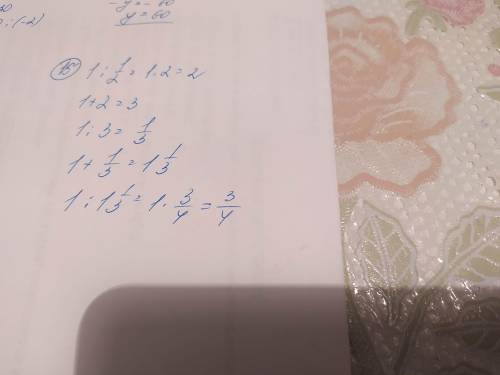 -y = -60
: (-2)
y = 60
15) 1 : 1/2 = 1 · 2 = 2
1 + 2 = 3
1 : 3 = 1/3
1 + 1/3 = 1 1/3
1 : 1 1/3 = 1 · 3/4 = 3/4